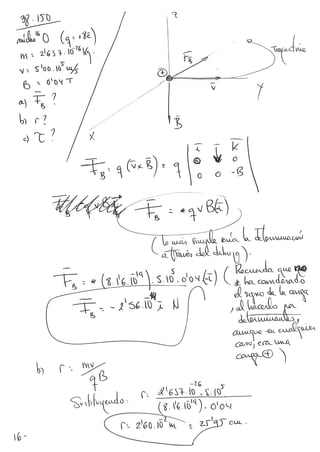 38.150
núcleo O (q=+8e)
m = 2'657.10^-26 Kg.
v = 5'00.10^5 m/s
B = 0'04 T
a) F_B ?
b) r?
c) τ?
z
F_B
Trayectoria
+
v
y
x
B
F_B = q (v x B) = q | i j k
0 v 0
0 0 -B |
F_B = - q v B (i)
(lo más simple sería la determinación
a través del dibujo).
F_B = - (8.1'6.10^-19).5.10^5.0'04 (i)
(Recuerda que no
se ha considerado
el signo de la carga
, al hacerlo por
determinantes,
aunque en cualquier
caso, era una
carga +)
F_B = - 2'56.10^-14 i N
b) r = mv / qB
Sustituyendo: r = 2'657.10^-26 . 5.10^5 / (8.1'6.10^-19) . 0'04
r = 2'60.10^-2 m = 25'95 cm.
16-